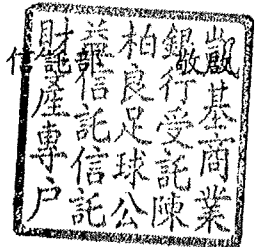 凱基商業
銀行受託陳
柏良足球公
益信託信託
財產專戶
信 敬